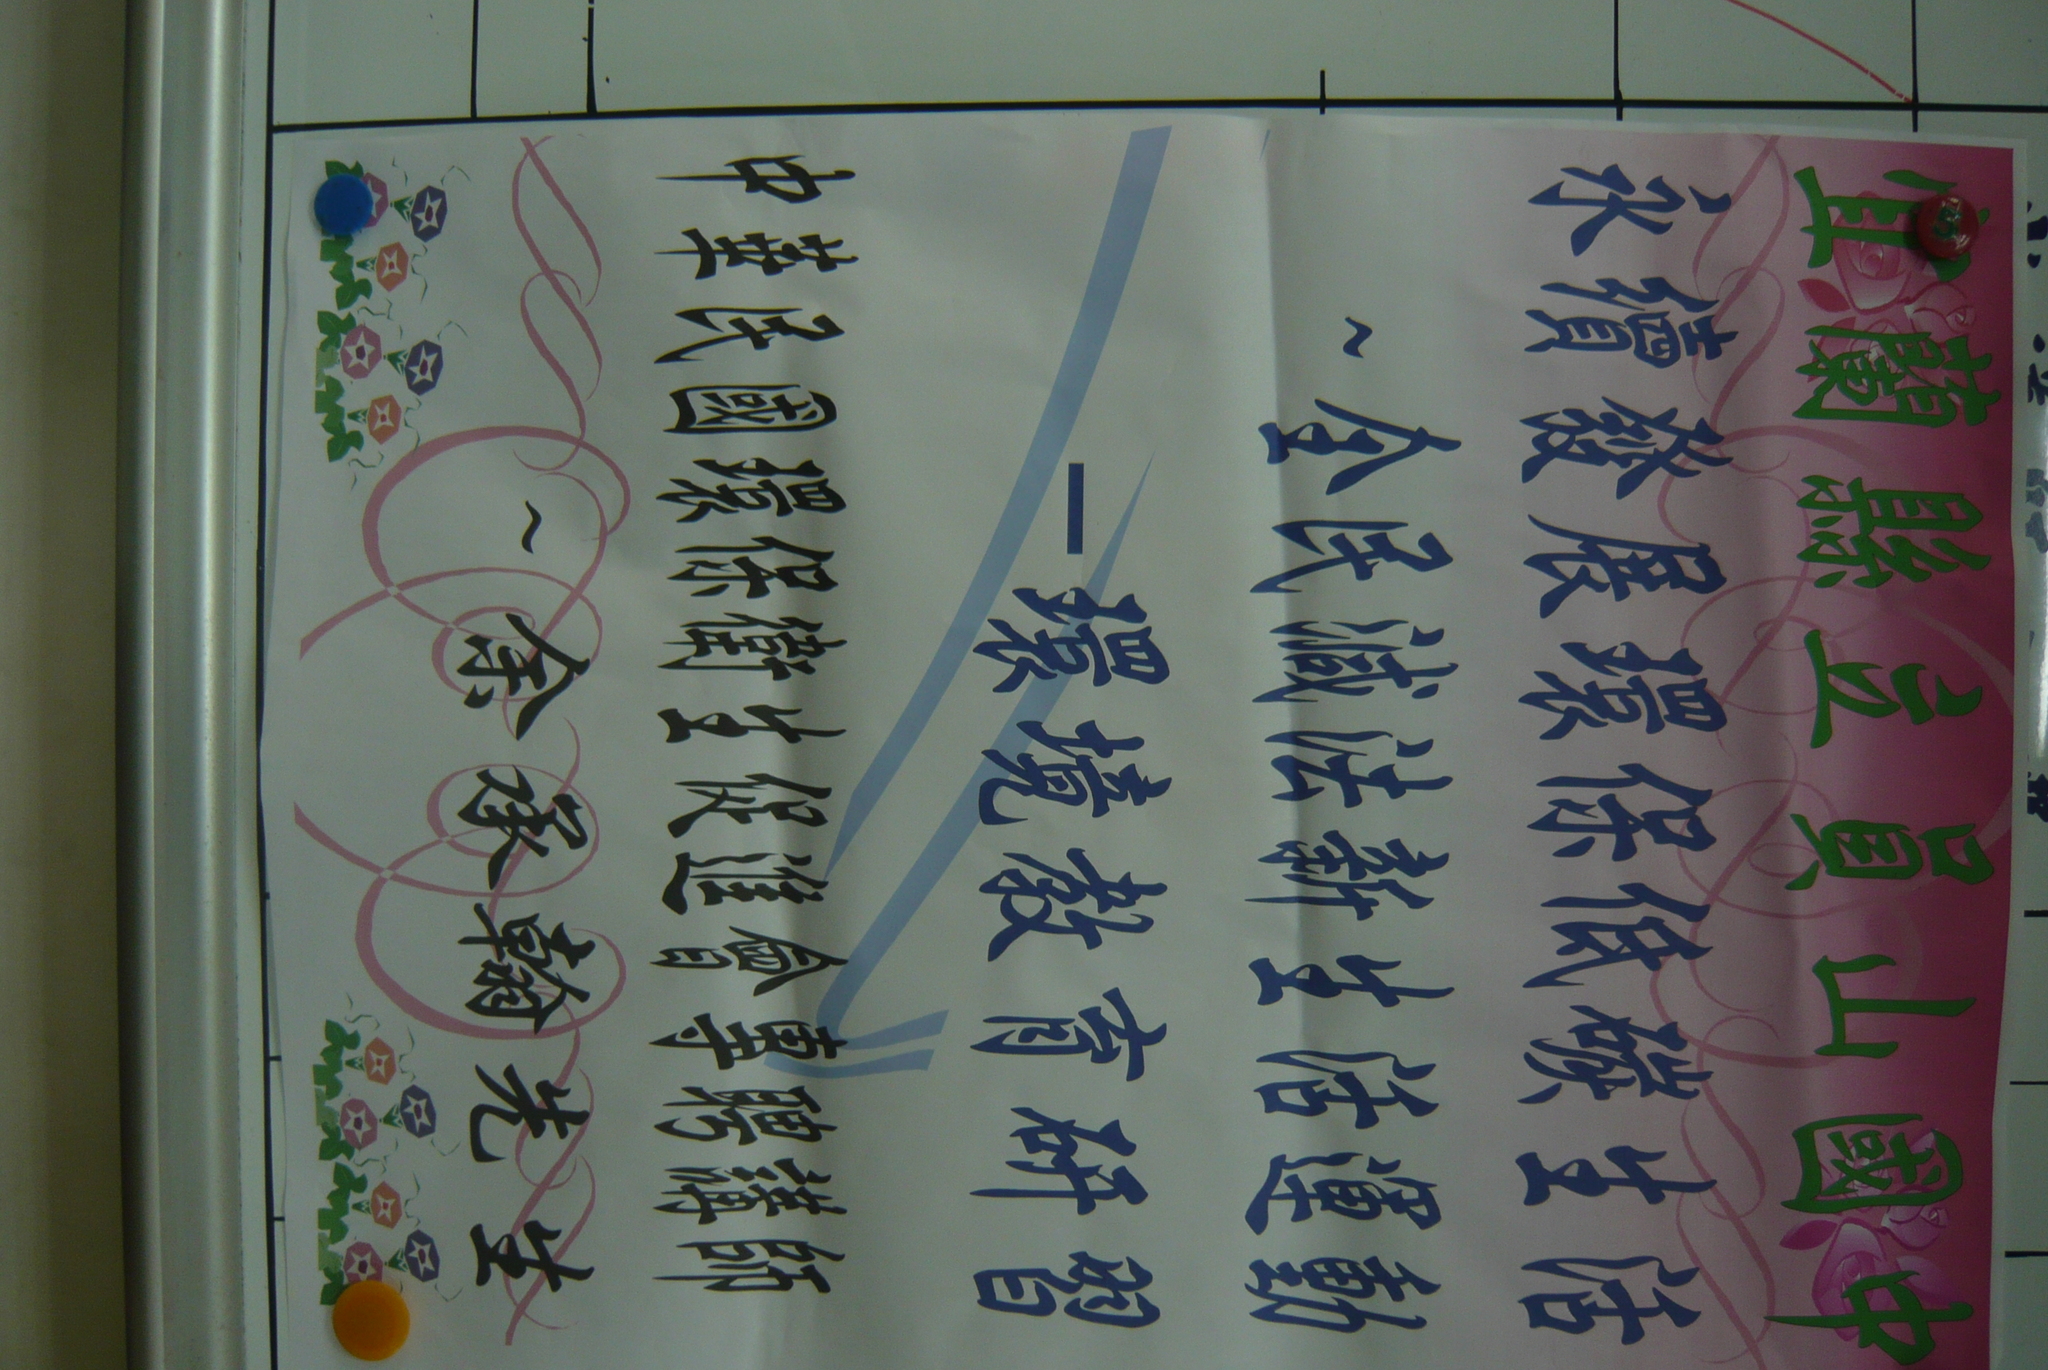 宜蘭縣立員山國中
永續發展環保低碳生活
~全民減法新生活運動
—環境教育研習
中華民國環保衛生促進會專聘講師
~余承翰先生